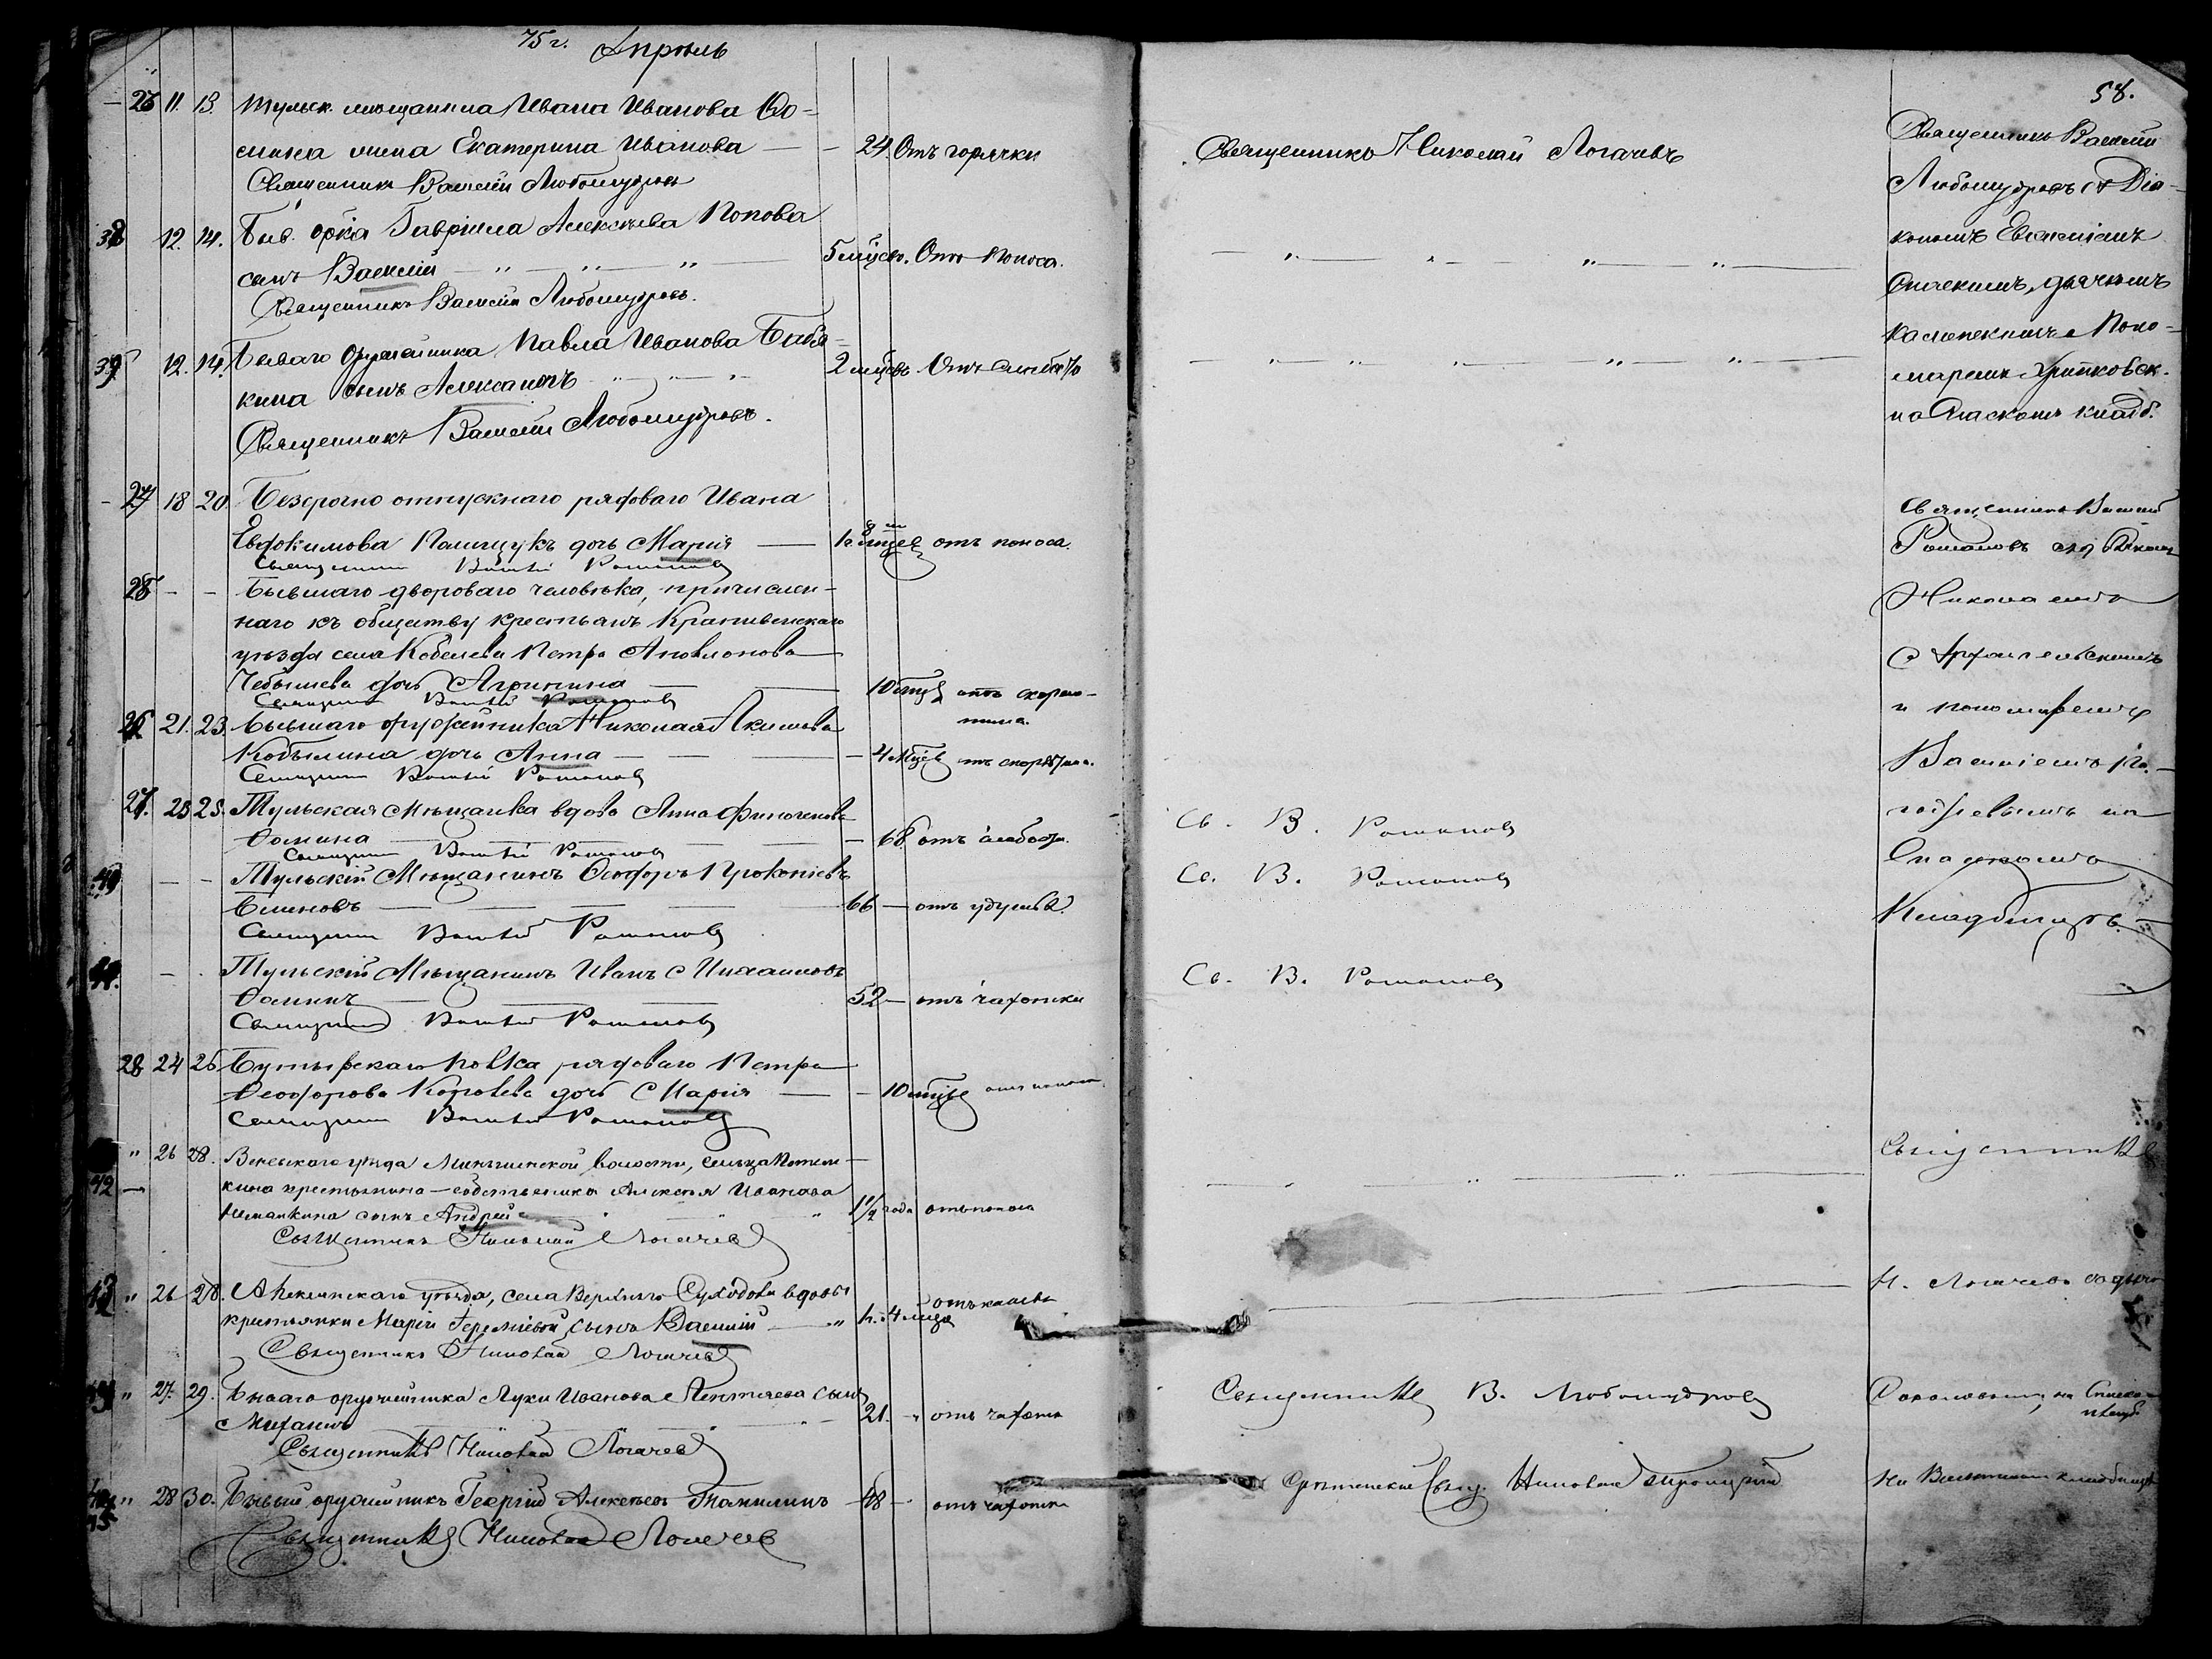 75 г. Апрѣль
58.
23 11. 13. Тульск. мѣщанина Ивана Иванова Ѳо-
мина жена Екатерина Иванова — 24. Отъ горячки
Священникъ Николай Логачевъ
Священникъ Василій Любомудровъ
38 12. 14. Быв. оръка Гавріила Алексѣева Попова
сынъ Василій 5 мѣсяц. Отъ поноса.
Священникъ Василій Любомудровъ.
39 12. 14. Бывшаго Оружейника Павла Иванова Бабя-
кина сынъ Александръ 2 мѣсяц. Отъ слабости
Священникъ Василій Любомудровъ.
Священникъ Василій
Любомудровъ съ Діа-
кономъ Евгеніемъ
Спасскимъ, дьячкомъ
Каменскимъ и Поно-
маремъ
на Спаскомъ кладб.
24 18 20. Безсрочно отпускнаго рядоваго Ивана
Евдокимова Полищукъ дочь Марія — отъ поноса.
Священникъ Василій Романовъ
25 — — Бывшаго двороваго человѣка, причислен-
наго къ обществу крестьянъ Крапивенскаго
уѣзда села Кобелева Петра Аполлонова
Чебышева дочь Агрипина — 10 мѣсяц. отъ скорла-
тина.
Священникъ Василій Романовъ
26 21. 23. Бывшаго оружейника Николая Акимова
Кобылина дочь Анна — 4 мѣсяц. отъ скорлатины.
Священникъ Василій Романовъ
27. 23 25. Тульская Мѣщанка вдова Анна Финогенова
Ѳомина — 68 отъ слабости.
Священникъ Василій Романовъ
Св. В. Романовъ
40 — — Тульскій Мѣщанинъ Ѳеодоръ Прокопіевъ
Блиновъ — 66 — отъ удушья.
Священникъ Василій Романовъ
Св. В. Романовъ
41. — Тульскій Мѣщанинъ Иванъ Михаиловъ
Ѳоминъ — 52 — отъ чахотки
Священникъ Василій Романовъ
Св. В. Романовъ
28 24 26 Бутырскаго полка рядоваго Петра
Ѳеодорова Королева дочь Марія — 10 мѣсяц. отъ поноса.
Священникъ Василій Романовъ
Священникъ Василій
Романовъ съ Діакон.
Николаемъ
Архангельскимъ
и пономаремъ
Василіемъ
на
Спаскомъ
Кладбищѣ.
42 " 26 28. Веневскаго уѣзда волости, сельца
крестьянина-собственника Алексѣя Иванова
сынъ Андрей 1 1/2 года отъ поноса
Священникъ Николай Логачевъ
Священникъ
43 " 26 28. Алексинскаго уѣзда, села Верхняго Суходола вдовы
крестьянки Маріи сынъ Василій 4 мѣсяц. отъ кашля
Священникъ Николай Логачевъ
Н. Логачевъ съ дьяч.
44 " 27. 29. Бывшаго оружейника Луки Иванова Лентяева сынъ
Михаилъ 21. отъ чахотки
Священникъ Николай Логачевъ
Священникъ В. Любомудровъ
на Спаском
кладб.
45 " 28 30. Бывшій оружейникъ Георгій Алексѣевъ 48 — отъ чахотки
Священникъ Николай Логачевъ
Срѣтенскій Свящ. Николай
На кладбищѣ